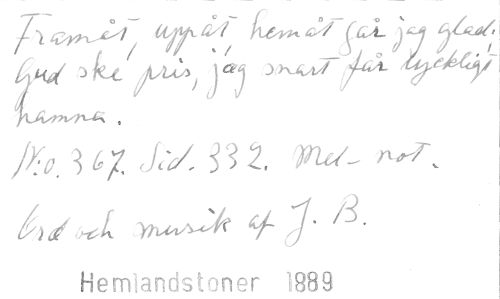 Framåt, uppåt hemåt går jag glad.
Gud ske pris, jag snart får lyckligt
hamna.
N:o. 367. Sid. 332. Mel- not.
Ord och musik af J. B.
Hemlandstoner 1889